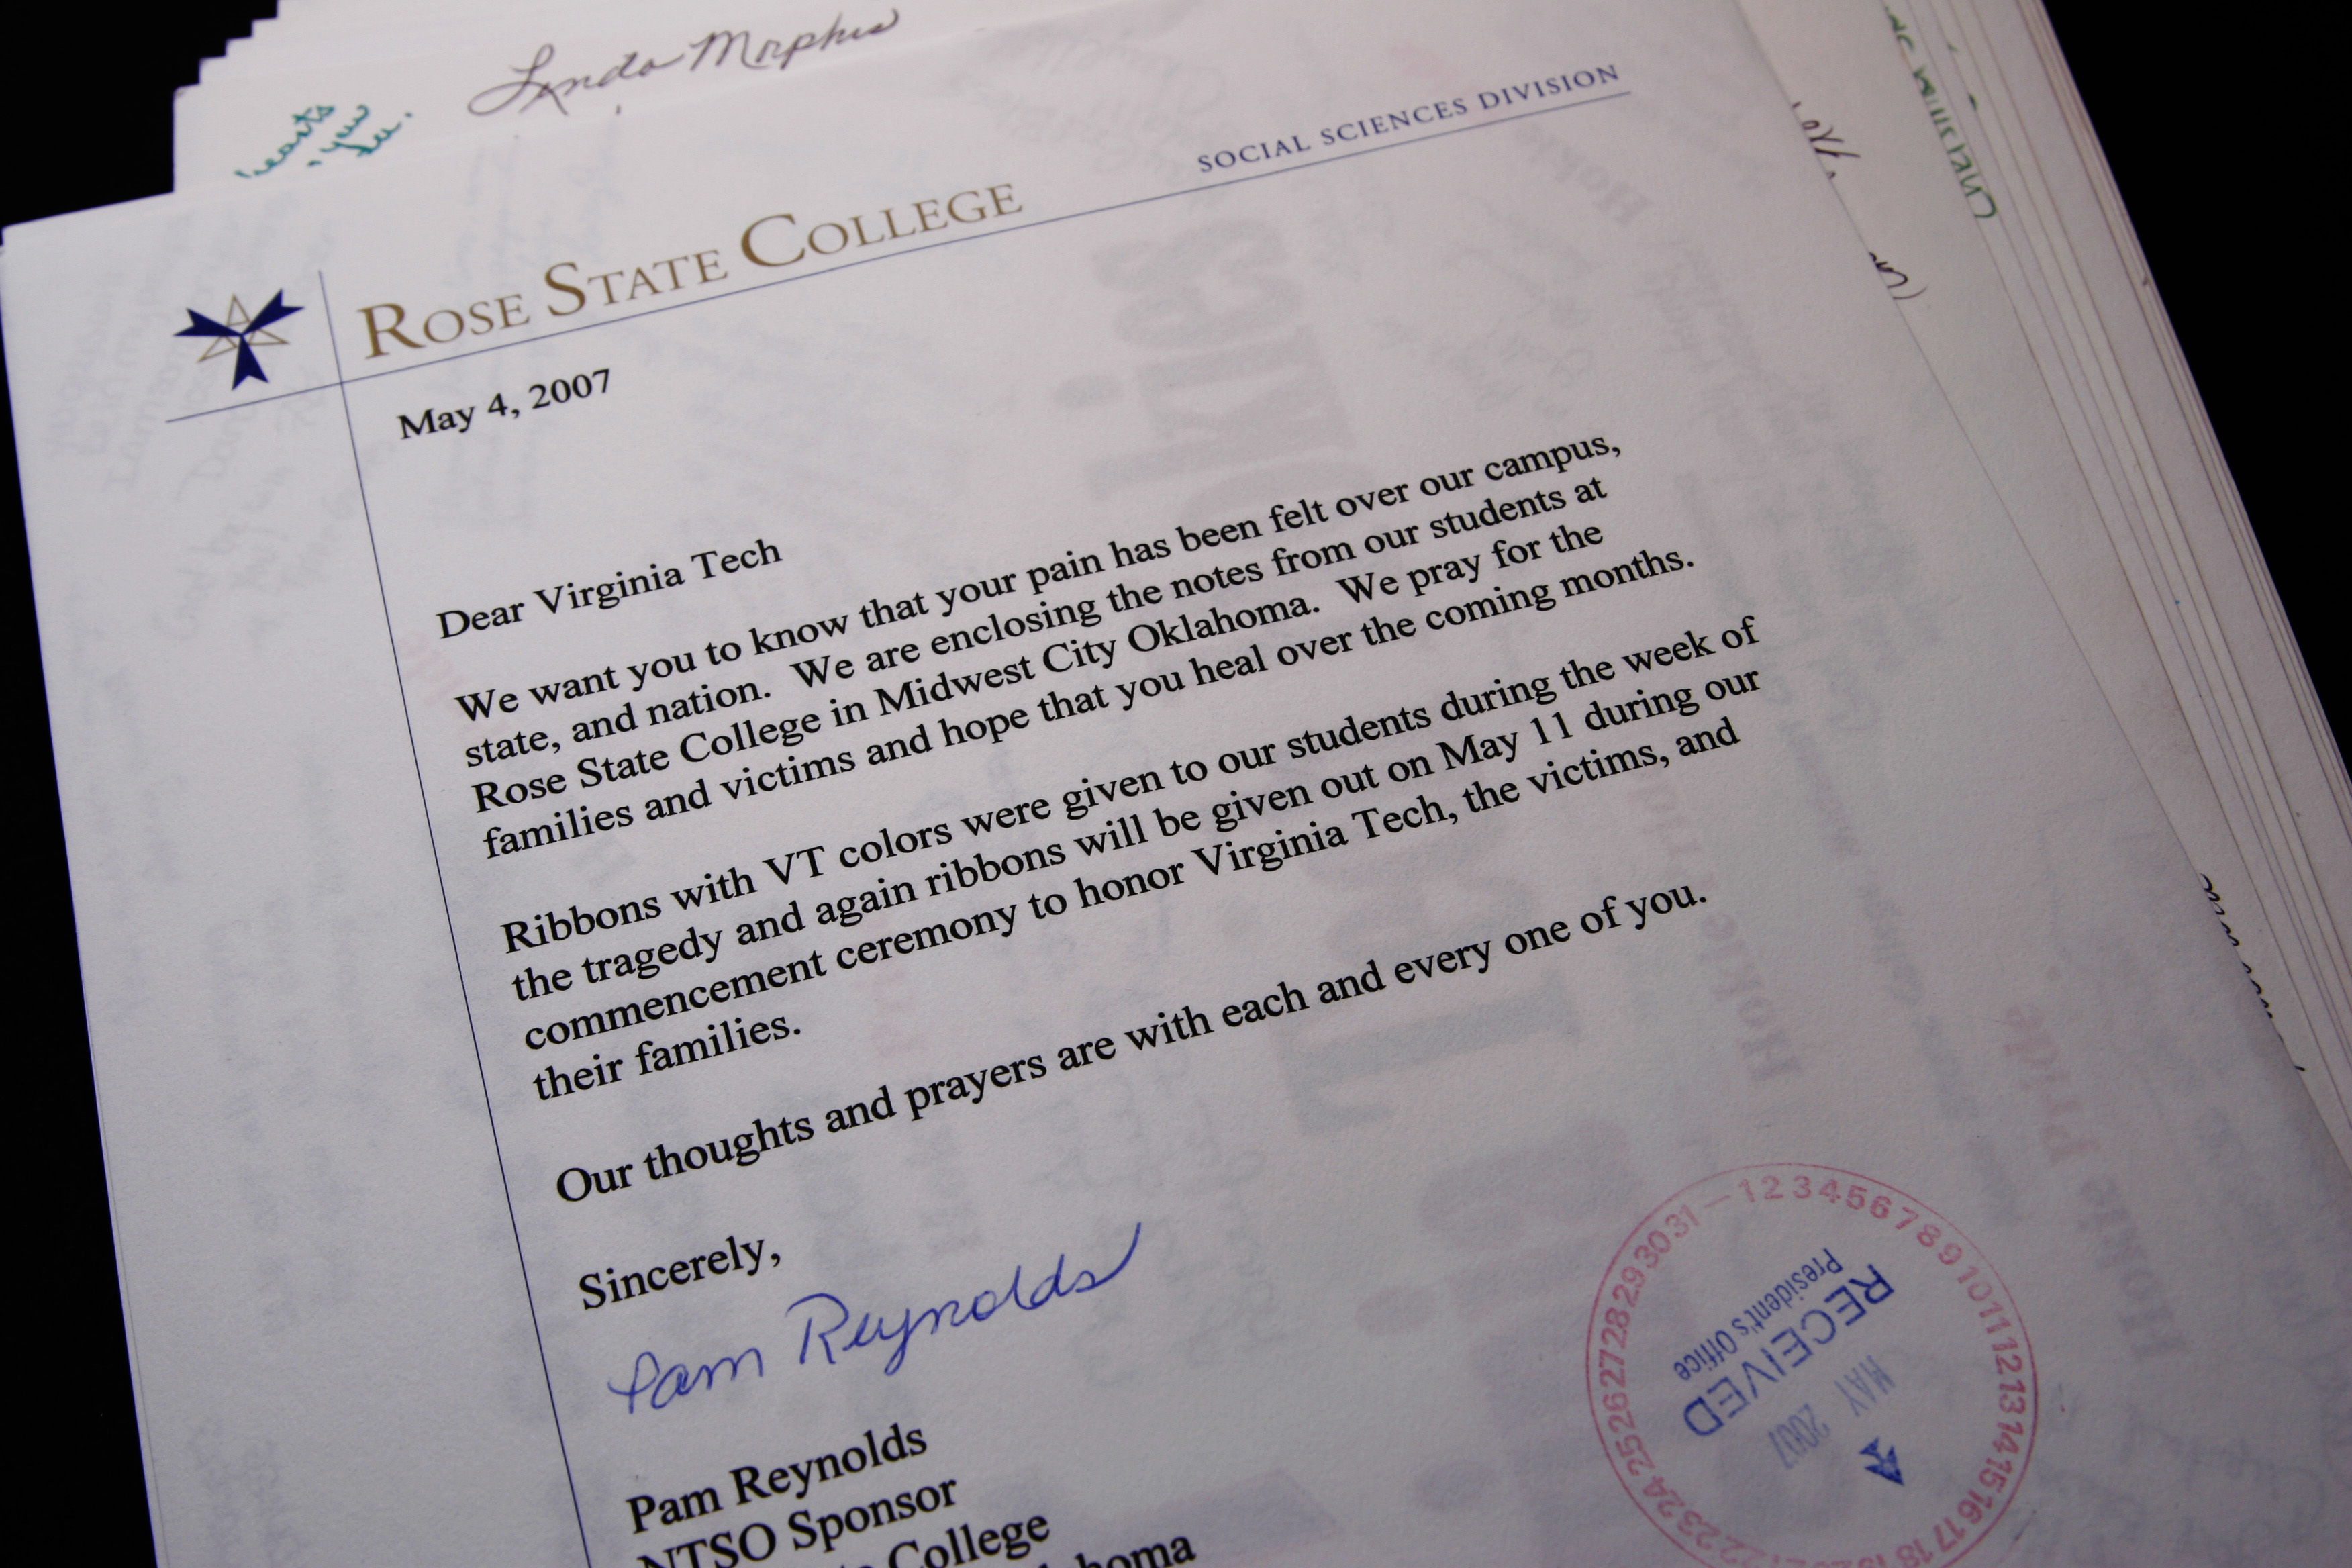 Lynda Morphis
hearts
you
ROSE STATE COLLEGE
SOCIAL SCIENCES DIVISION
May 4, 2007
Dear Virginia Tech
We want you to know that your pain has been felt over our campus,
state, and nation. We are enclosing the notes from our students at
Rose State College in Midwest City Oklahoma. We pray for the
families and victims and hope that you heal over the coming months.
Ribbons with VT colors were given to our students during the week of
the tragedy and again ribbons will be given out on May 11 during our
commencement ceremony to honor Virginia Tech, the victims, and
their families.
Our thoughts and prayers are with each and every one of you.
Sincerely,
Pam Reynolds
Pam Reynolds
NTSO Sponsor
College
1 2 3 4 5 6 7 8 9 10 11 12 13 14 15 16 17 18 22 23 24 25 26 27 28 29 30 31
RECEIVED
President's Office
MAY
2007
Hokie Pride